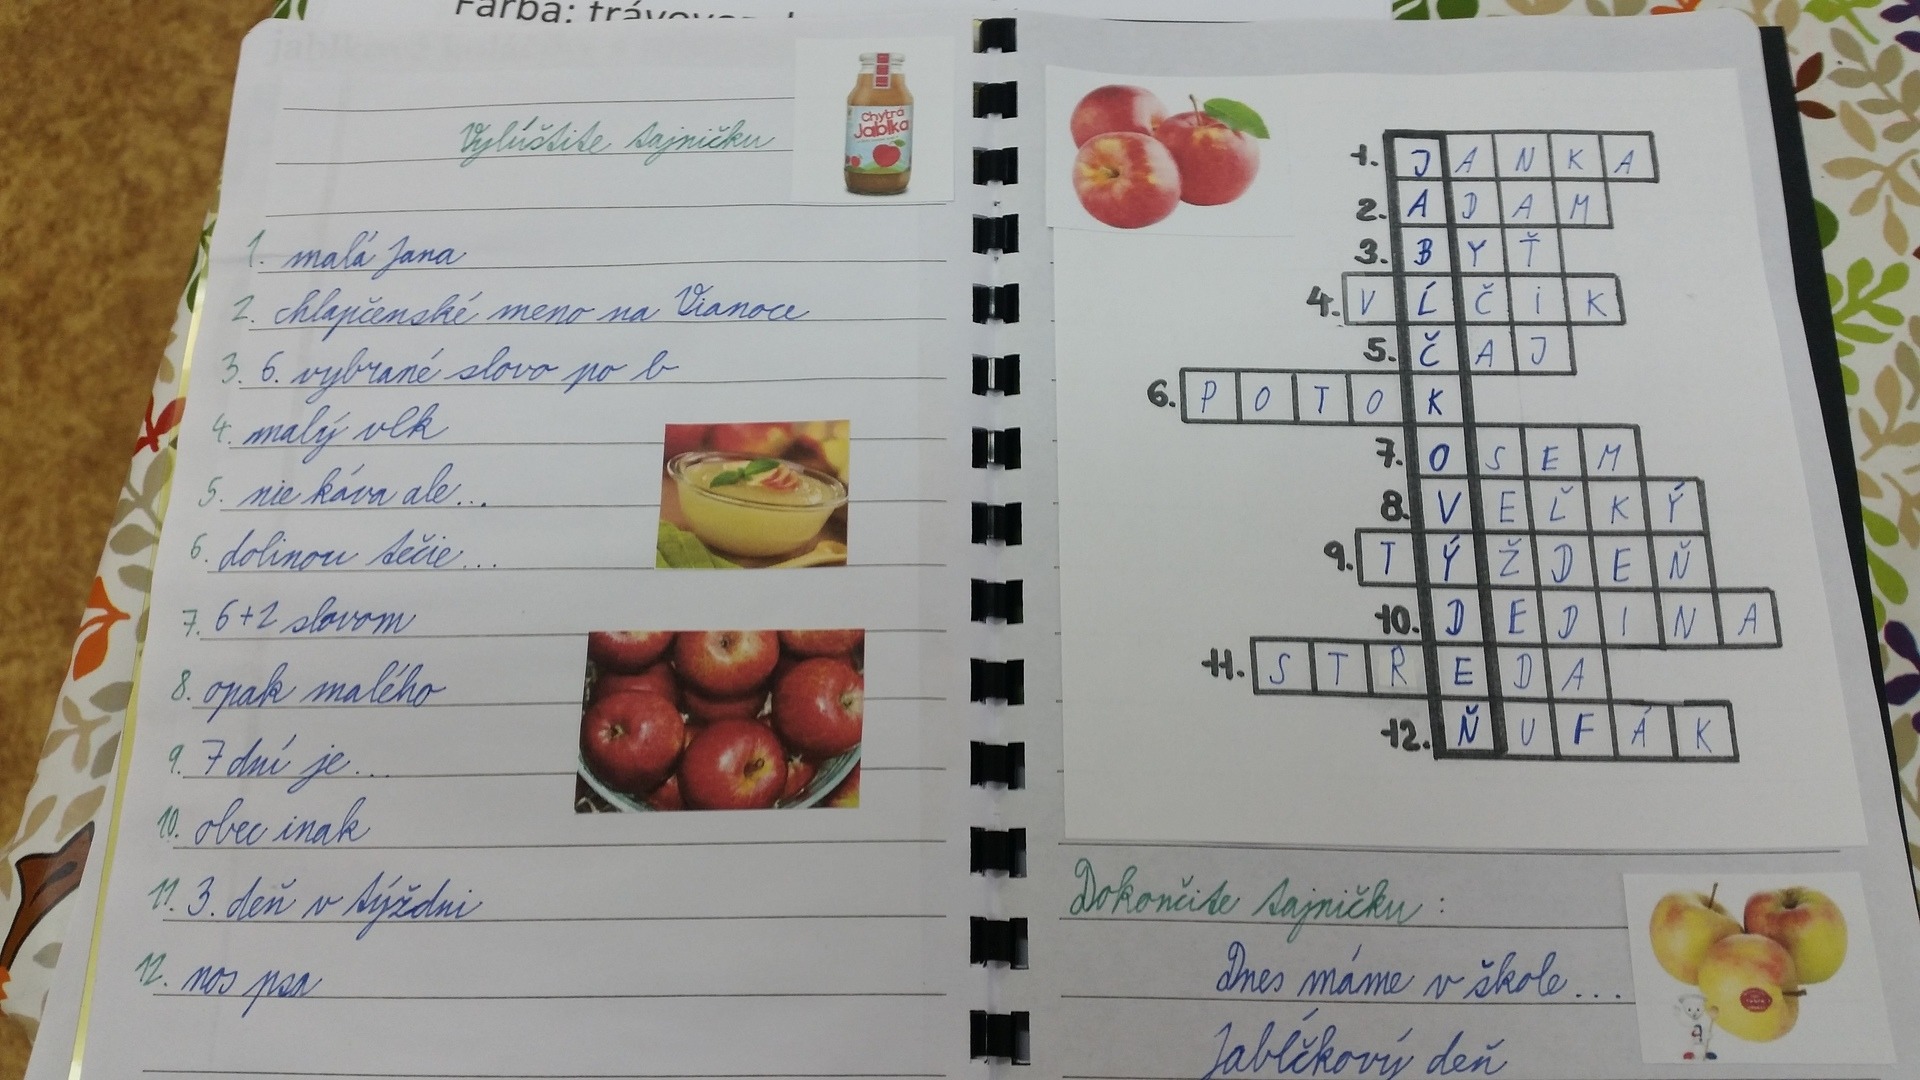 Farba:
Vylúštite tajničku
Chytrá
Jablka
1. malá Jana
2. chlapčenské meno na Vianoce
3. 6. vybrané slovo po b
4. malý vlk
5. nie káva ale...
6. dolinou tečie...
7. 6+2 slovom
8. opak malého
9. 7 dní je...
10. obec inak
11. 3. deň v týždni
12. nos psa
1. JANKA
2. ADAM
3. BYŤ
4. VĹČIK
5. ČAJ
6. POTOK
7. OSEM
8. VEĽKÝ
9. TÝŽDEŇ
10. DEDINA
11. STREDA
12. ŇUFÁK
Dokončite tajničku:
Dnes máme v škole...
Jabĺčkový deň